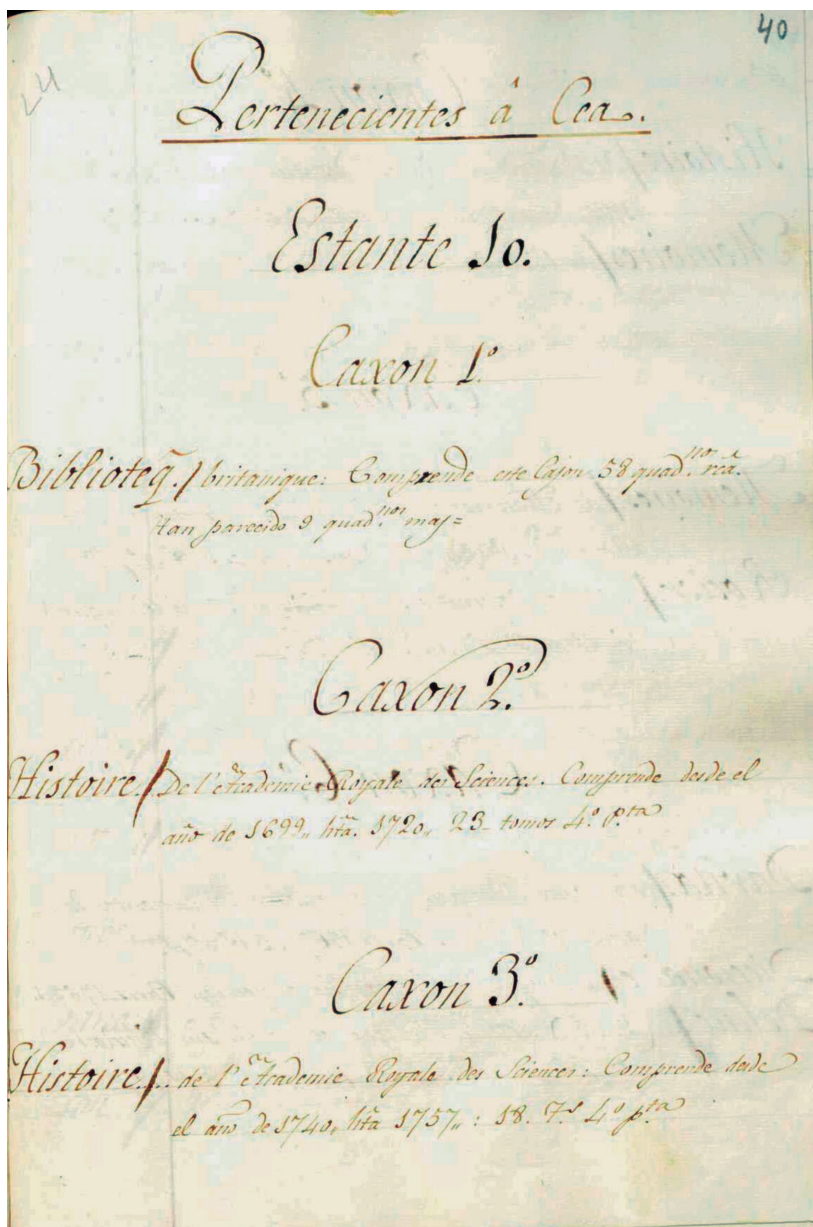 40
Pertenecientes â Cea.
Estante 10.
Caxon 1º
Biblioteq̃./ britanique: Comprende este Cajon 58 quad.nos
tan parecido 9 quad.nos maj=
Caxon 2º.
Histoire./ De l'Academie Royale des Sciences. Comprende desde el
año de 1699,, hta. 1720,, 23 tomos 4º. pta
Caxon 3º.
Histoire./.. de l'Academie Royale des Sciences: Comprende desde
el año de 1740,, hta 1757,,: 18. Ts. 4º pta